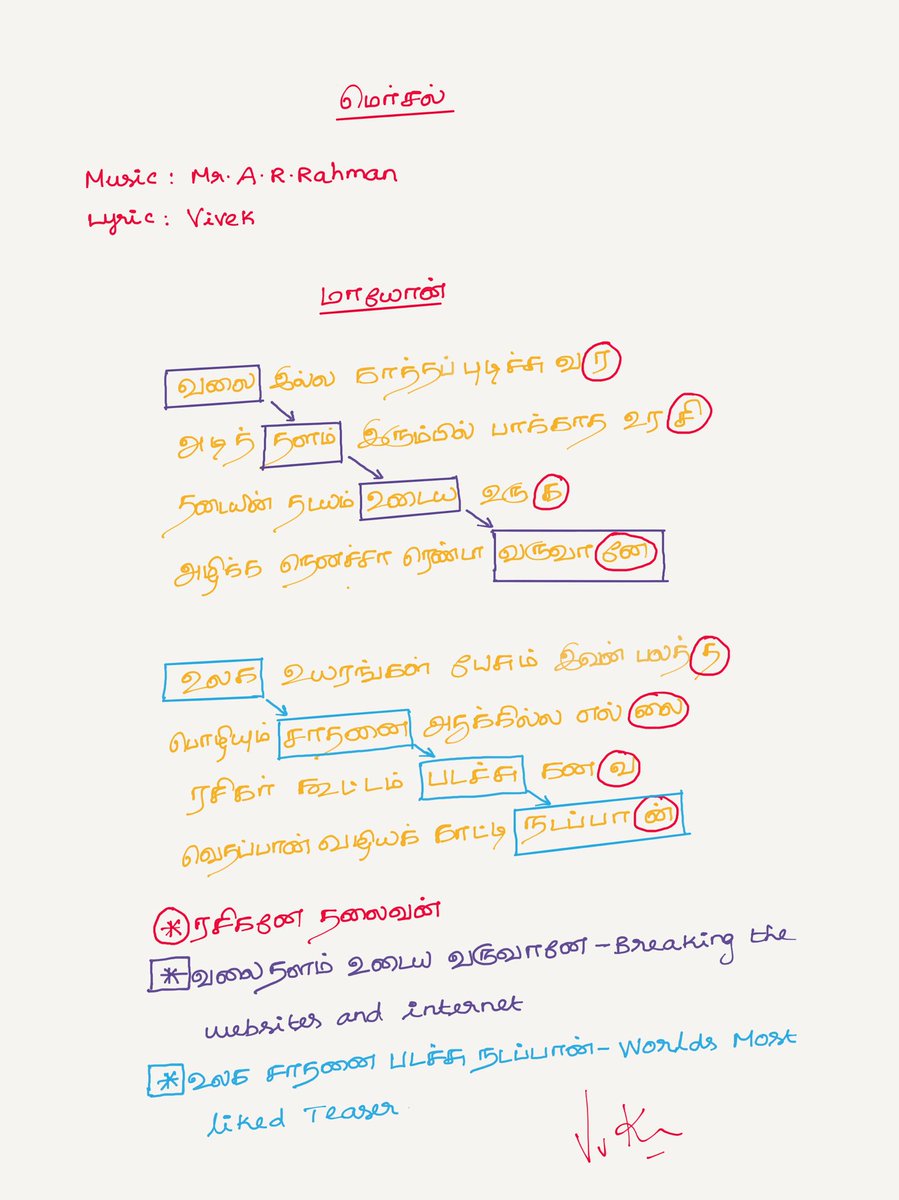 மெர்சல்
Music : Mr. A. R. Rahman
Lyric : Vivek
மாயோன்
வலை இல்ல காத்தப் புடிச்சு வர
அடித் தளம் இரும்பில் பாக்காத உரசி
தடையின் நடயும் உடைய உருக
அழிக்க நெனச்சா ரெண்டா வருவானே
உலக உயரங்கள் பேசும் இவன் பலத்த
பொழியும் சாதனை அதக்கில்ல எல்லை
ரசிகர் கூட்டம் படச்சு கனவ
வெதப்பான் வழியக் காட்டி நடப்பான்
* ரசிகனே தலைவன்
* வலைதளம் உடைய வருவானே - Breaking the
websites and internet
* உலக சாதனை படச்சு நடப்பான் - Worlds Most
liked Teaser.